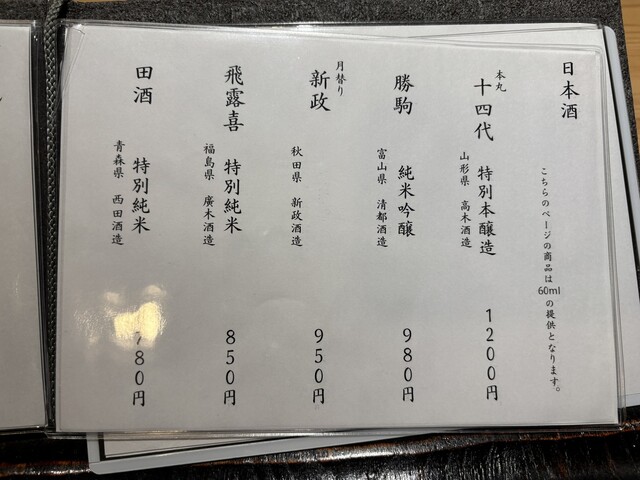 日本酒
こちらのページの商品は60mlの提供となります。
本丸
十四代 特別本醸造 1200円
山形県 高木酒造
勝駒 純米吟醸 980円
富山県 清都酒造
月替り
新政 950円
秋田県 新政酒造
飛露喜 特別純米 850円
福島県 廣木酒造
田酒 特別純米 780円
青森県 西田酒造